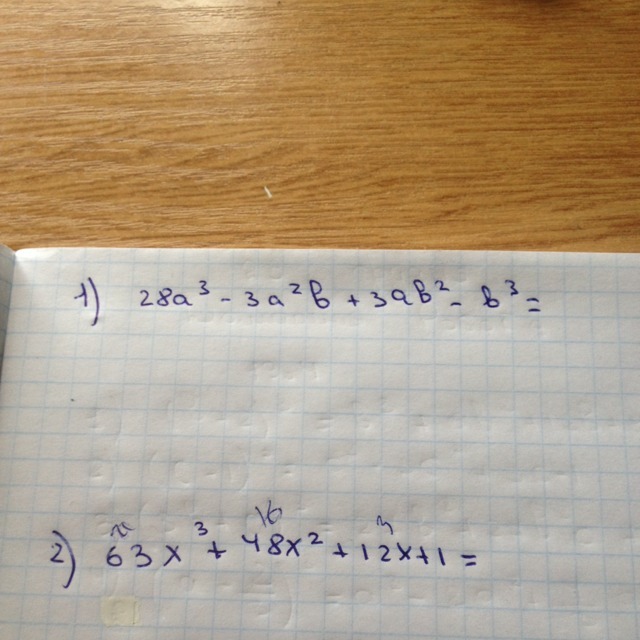 1) 28a³ - 3a²b + 3ab² - b³ =
16
2) 63x³ + 48x² + 12x + 1 =